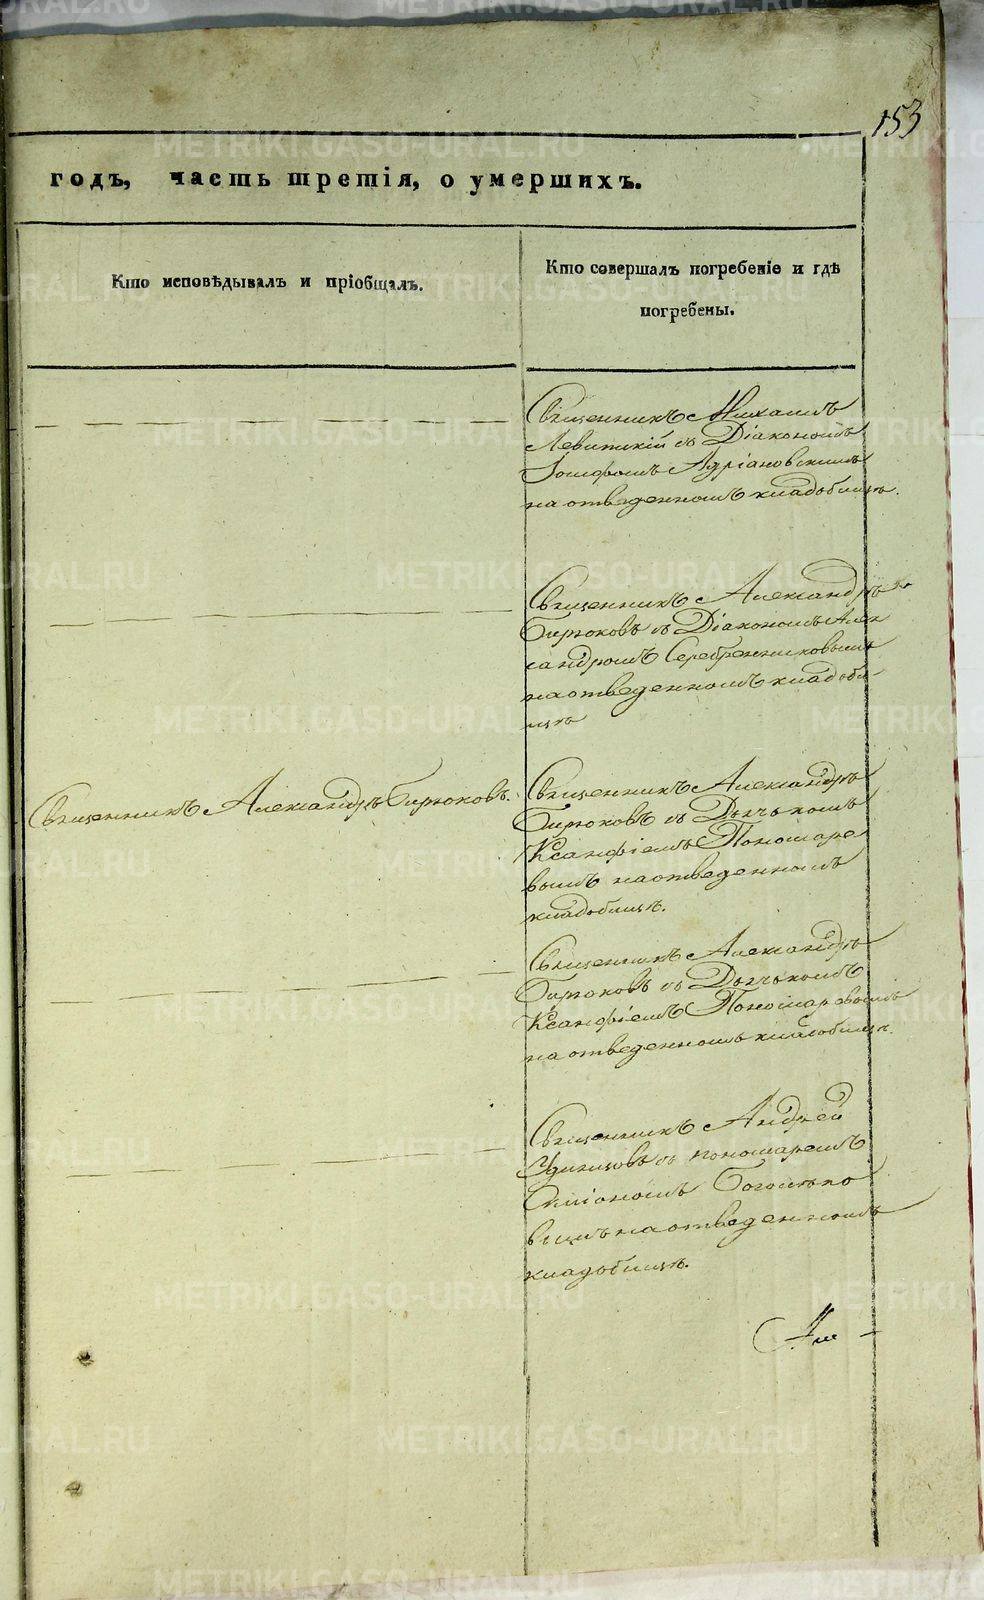 153
годъ, часть третія, о умершихъ.
Кто исповѣдывалъ и пріобщалъ.
Кто совершалъ погребеніе и гдѣ
погребены.
Священникъ Михаилъ
Левитскій съ Діакономъ
Іосифомъ Адріановскимъ
на отведенномъ кладбищѣ.
Священникъ Александръ
Бирюковъ съ Діакономъ Алек
сандромъ Серебренниковымъ
на отведенномъ кладби-
щѣ
Священникъ Александръ Бирюковъ.
Священникъ Александръ
Бирюковъ съ Дьячькомъ
Ксанфіемъ Пономаре
вымъ на отведенномъ
кладбищѣ.
Священникъ Александръ
Бирюковъ съ Дьячькомъ
Ксанфіемъ Пономаревымъ
на отведенномъ кладбищѣ.
Священникъ Андрей
Удинцовъ съ пономаремъ
Симіономъ
на отведенномъ
кладбищѣ.
METRIKI.GASO-URAL.RU